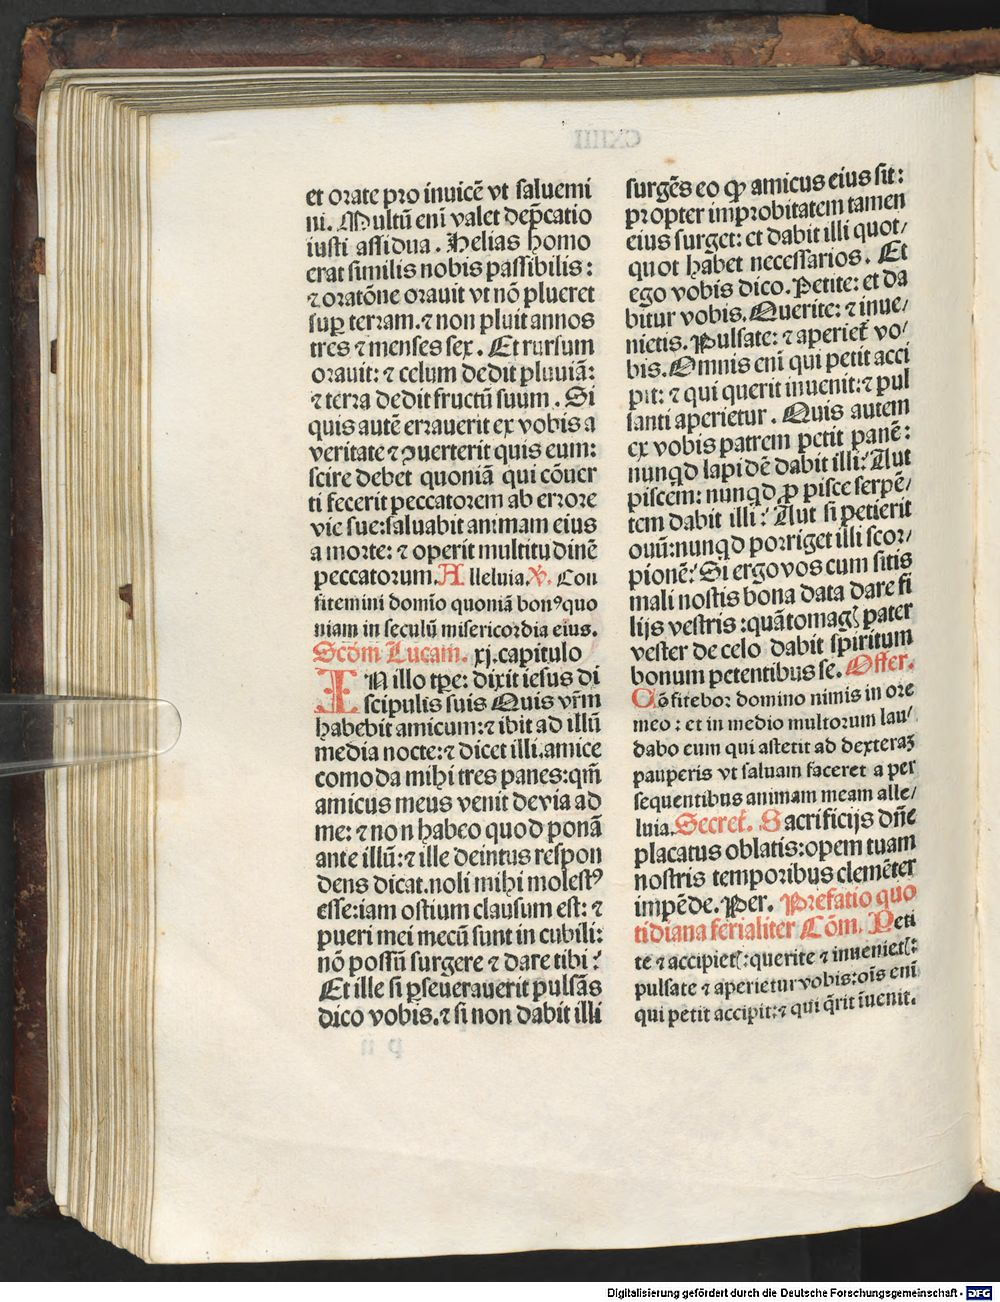 et orate pro inuicē vt saluemi
ni. Multū eni valet dep̄catio
iusti assidua. Helias homo
erat similis nobis passibilis:
⁊ oratōne orauit vt nō plueret
sup̱ terram. ⁊ non pluit annos
tres ⁊ menses sex. Et rursum
orauit: ⁊ celum dedit pluuiā:
⁊ terra dedit fructū suum. Si
quis autē errauerit ex vobis a
veritate ⁊ ꝯuerterit quis eum:
scire debet quoniā qui cōuer
ti fecerit peccatorem ab errore
vie sue: saluabit animam eius
a morte: ⁊ operit multitudinē
peccatorum. Alleluia. ℣. Con
fitemini domīo quoniā bonꝰ quo
niam in seculū misericordia eius.
Scd̄m Lucam. xj. capitulo
IN illo tp̄e: dixit iesus di
scipulis suis Quis vr̄m
habebit amicum: ⁊ ibit ad illū
media nocte: ⁊ dicet illi. amice
comoda mihi tres panes: qm̄
amicus meus venit de via ad
me: ⁊ non habeo quod ponā
ante illū: ⁊ ille deintus respon
dens dicat. noli mihi molestꝰ
esse: iam ostium clausum est: ⁊
pueri mei mecū sunt in cubili:
nō possū surgere ⁊ dare tibi?
Et ille si ꝑseuerauerit pulsās
dico vobis. ⁊ si non dabit illi
surgēs eo ꝙ amicus eius sit:
propter improbitatem tamen
eius surget: et dabit illi quot/
quot habet necessarios. Et
ego vobis dico. Petite: et da
bitur vobis. Querite: ⁊ inue/
nietis. Pulsate: ⁊ aperiet᷑ vo/
bis. Omnis eni qui petit acci
pit: ⁊ qui querit inuenit: ⁊ pul
santi aperietur. Quis autem
ex vobis patrem petit panē:
nunqd lapidē dabit illi? Aut
piscem: nunqd ꝓ pisce serpē/
tem dabit illi? Aut si petierit
ouū: nunqd porriget illi scor/
pionē? Si ergo vos cum sitis
mali nostis bona data dare fi
lijs vestris: quātomagꝭ pater
vester de celo dabit spiritum
bonum petentibus se. Offer.
Cōfitebor domino nimis in ore
meo: et in medio multorum lau/
dabo eum qui astetit ad dexteraꝫ
pauperis vt saluam faceret a per
sequentibus animam meam alle/
luia. Secret᷑. Sacrificijs dn̄e
placatus oblatis: opem tuam
nostris temporibus clemēter
impēde. Per. Prefatio quo
tidiana ferialiter Cōm. Peti
te ⁊ accipietꝭ: querite ⁊ inuenietꝭ:
pulsate ⁊ aperietur vobis: oīs enī
qui petit accipit: ⁊ qui q̄rit īuenit.
Digitalisierung gefördert durch die Deutsche Forschungsgemeinschaft - DFG